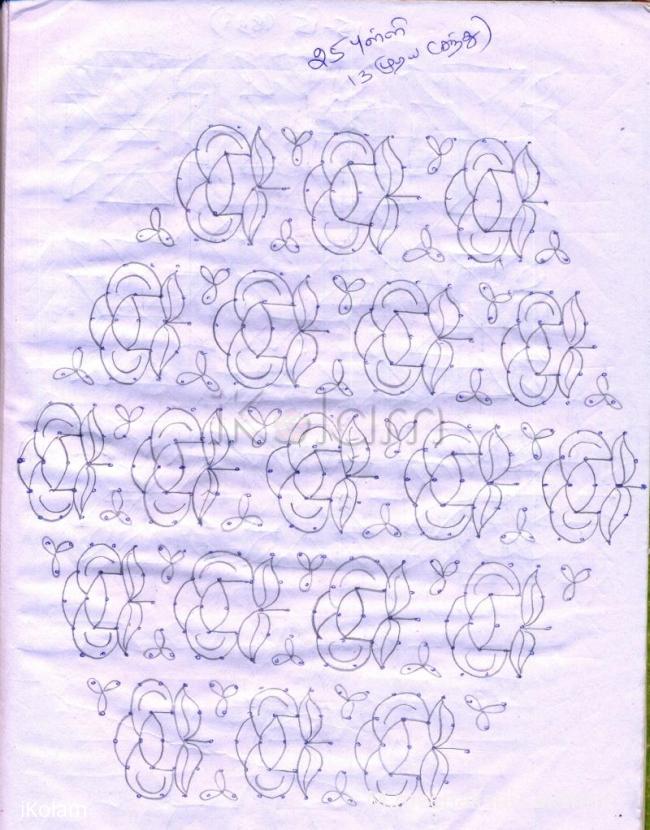 25 புள்ளி
13 முடிய (சந்து)
iKolam
iKolam